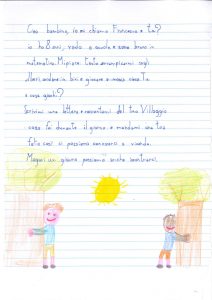 Ciao bambino, io mi chiamo Francesco e tu?
io ho 8 anni, vado a scuola e sono bravo in
matematica. Mi piace tanto arrampicarmi sugli
alberi, andare in bici e giocare a mosca cieca. Tu
a cosa giochi?
Scrivimi una lettera e raccontami del tuo Villaggio
cosa fai durante il giorno e mandami una tua
foto così ci possiamo conoscere a vicenda.
Magari un giorno possiamo anche incontrarci.